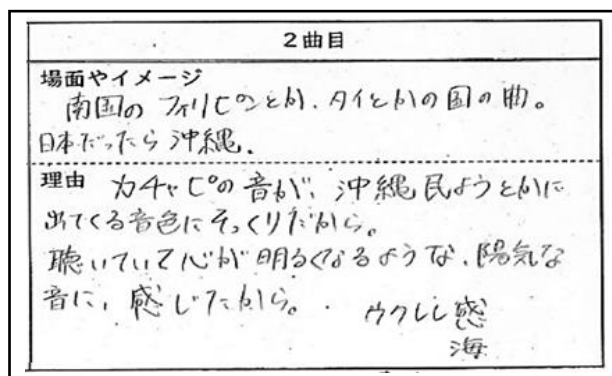 2曲目
場面やイメージ
南国の フィリピンとか、タイとかの国の曲。
日本だったら 沖縄.
理由 カチャピの音が、沖縄民ようとかに
出てくる音色にそっくりだから。
聴いていて心が明るくなるような、陽気な
音に、感じたから。
ウクレレ感
海